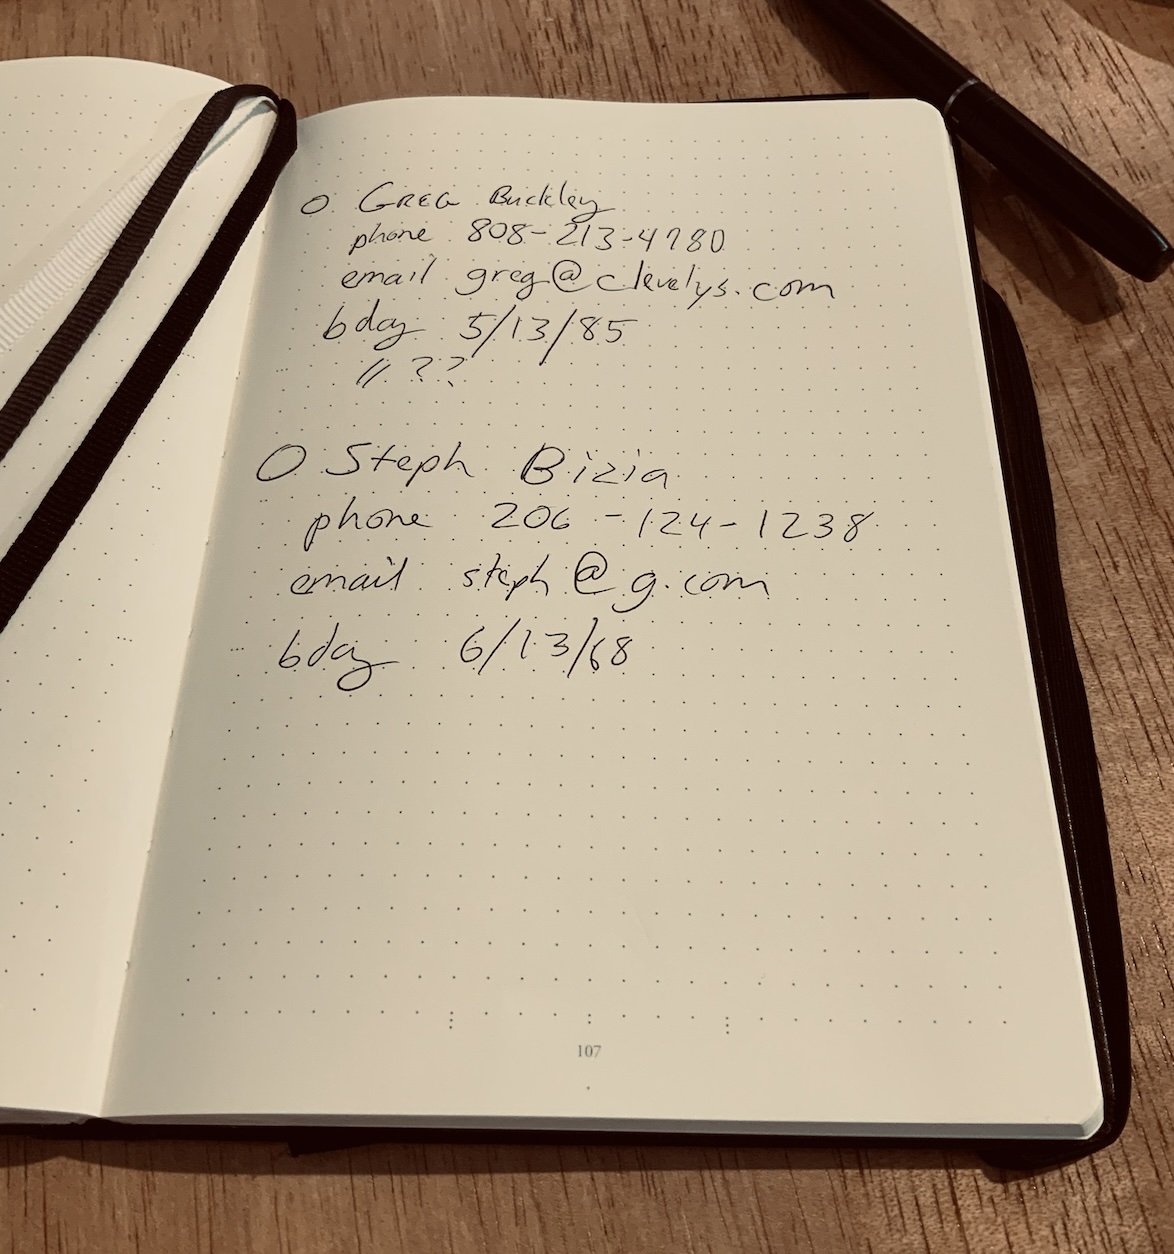 O Greg Buckley
phone 808-213-4980
email greg@clevelys.com
bday 5/13/85
// ??
O Steph Bizia
phone 206-124-1238
email steph@g.com
bday 6/13/68
107